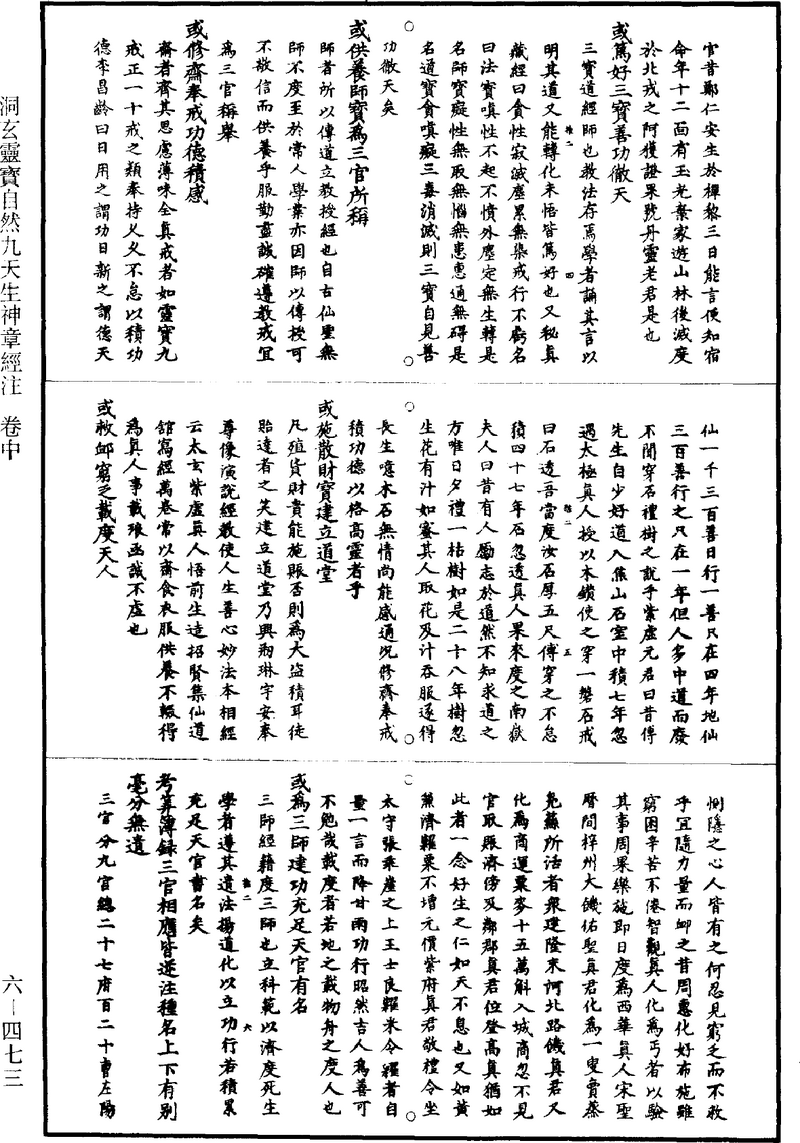 洞玄靈寶自然九天生神章經注　卷中
六－四七三
官昔鄭仁安生於禪黎三日能言便知宿
命年十二面有玉光棄家遊山林後滅度
於北戎之阿獲證果號丹靈老君是也
或篤好三寶善功徹天
三寶道經師也教法存焉學者誦其言以
明其道又能轉化未悟皆篤好也又秘真
藏經曰貪性寂滅塵累無染戒行不虧名
曰法寶嗔性不起不憤外塵定無生轉是
名師寶癡性無取無惱無恚惠通無碍是
名道寶貪嗔癡三毒消滅則三寶自見善
功徹天矣
或供養師寶為三官所稱
師者所以傳道立教授經也自古仙聖無
師不度至於常人學業亦因師以傳授可
不敬信而供養乎服勤盡誠確遵教戒宜
為三官稱舉
或修齋奉戒功德積感
齋者齊其思慮薄味全真戒者如靈寶九
戒正一十戒之類奉持乂乂不怠以積功
德李昌齡曰日用之謂功日新之謂德天
仙一千三百善日行一善只在四年地仙
三百善行之只在一年但人多中道而廢
不聞穿石禮樹之說乎紫虛元君曰昔傅
先生自少好道入焦山石室中積七年忽
遇太極真人授以木鑽使之穿一磐石戒
曰石透吾當度汝石厚五尺傅穿之不怠
積四十七年石忽透真人果來度之南嶽
夫人曰昔有人勵志於道然不知求道之
方唯日夕禮一枯樹如是二十八年樹忽
生花有汁如蜜其人取花及汁吞服遂得
長生噫木石無情尚能感通況修齋奉戒
積功德以格高靈者乎
或施散財寶建立道堂
凡殖貨財貴能施賑否則為大盜積耳徒
貽達者之笑建立道堂乃興刱琳宇安奉
尊像演說經教使人生善心妙法本相經
云太玄紫虛真人悟前生造招賢集仙道
舘寫經萬卷常以齋食衣服供養不輟得
為真人事載琅函誠不虛也
或救卹窮乏載度天人
惻隱之心人皆有之何忍見窮乏而不救
乎宜隨力量而卹之昔周惠化好布施雖
窮困辛苦不倦智觀真人化為丐者以驗
其事周果樂施即日度為西華真人宋聖
曆間梓州大饑佑聖真君化為一叟賣蒸
免蘇所活者衆建隆末河北路饑真君又
化為商運粟麥十五萬斛入城商忽不見
官取賑濟傍及鄰郡真君位登高真猶如
此者一念好生之仁如天不息也又如黃
兼濟糶粟不增元價紫府真君敬禮令坐
太守張乖崖之上王士良糶米令糴者自
量一言而降甘雨功行昭然吉人為善可
不勉哉載度者若地之載物舟之度人也
或為三師建功充足天官有名
三師經籍度三師也立科範以濟度死生
學者遵其遺法揚道化以立功行若積累
充足天官書名矣
考筭簿録三官相應皆逆注種名上下有別
毫分無遺
三官分九宮總二十七府百二十曹左陽